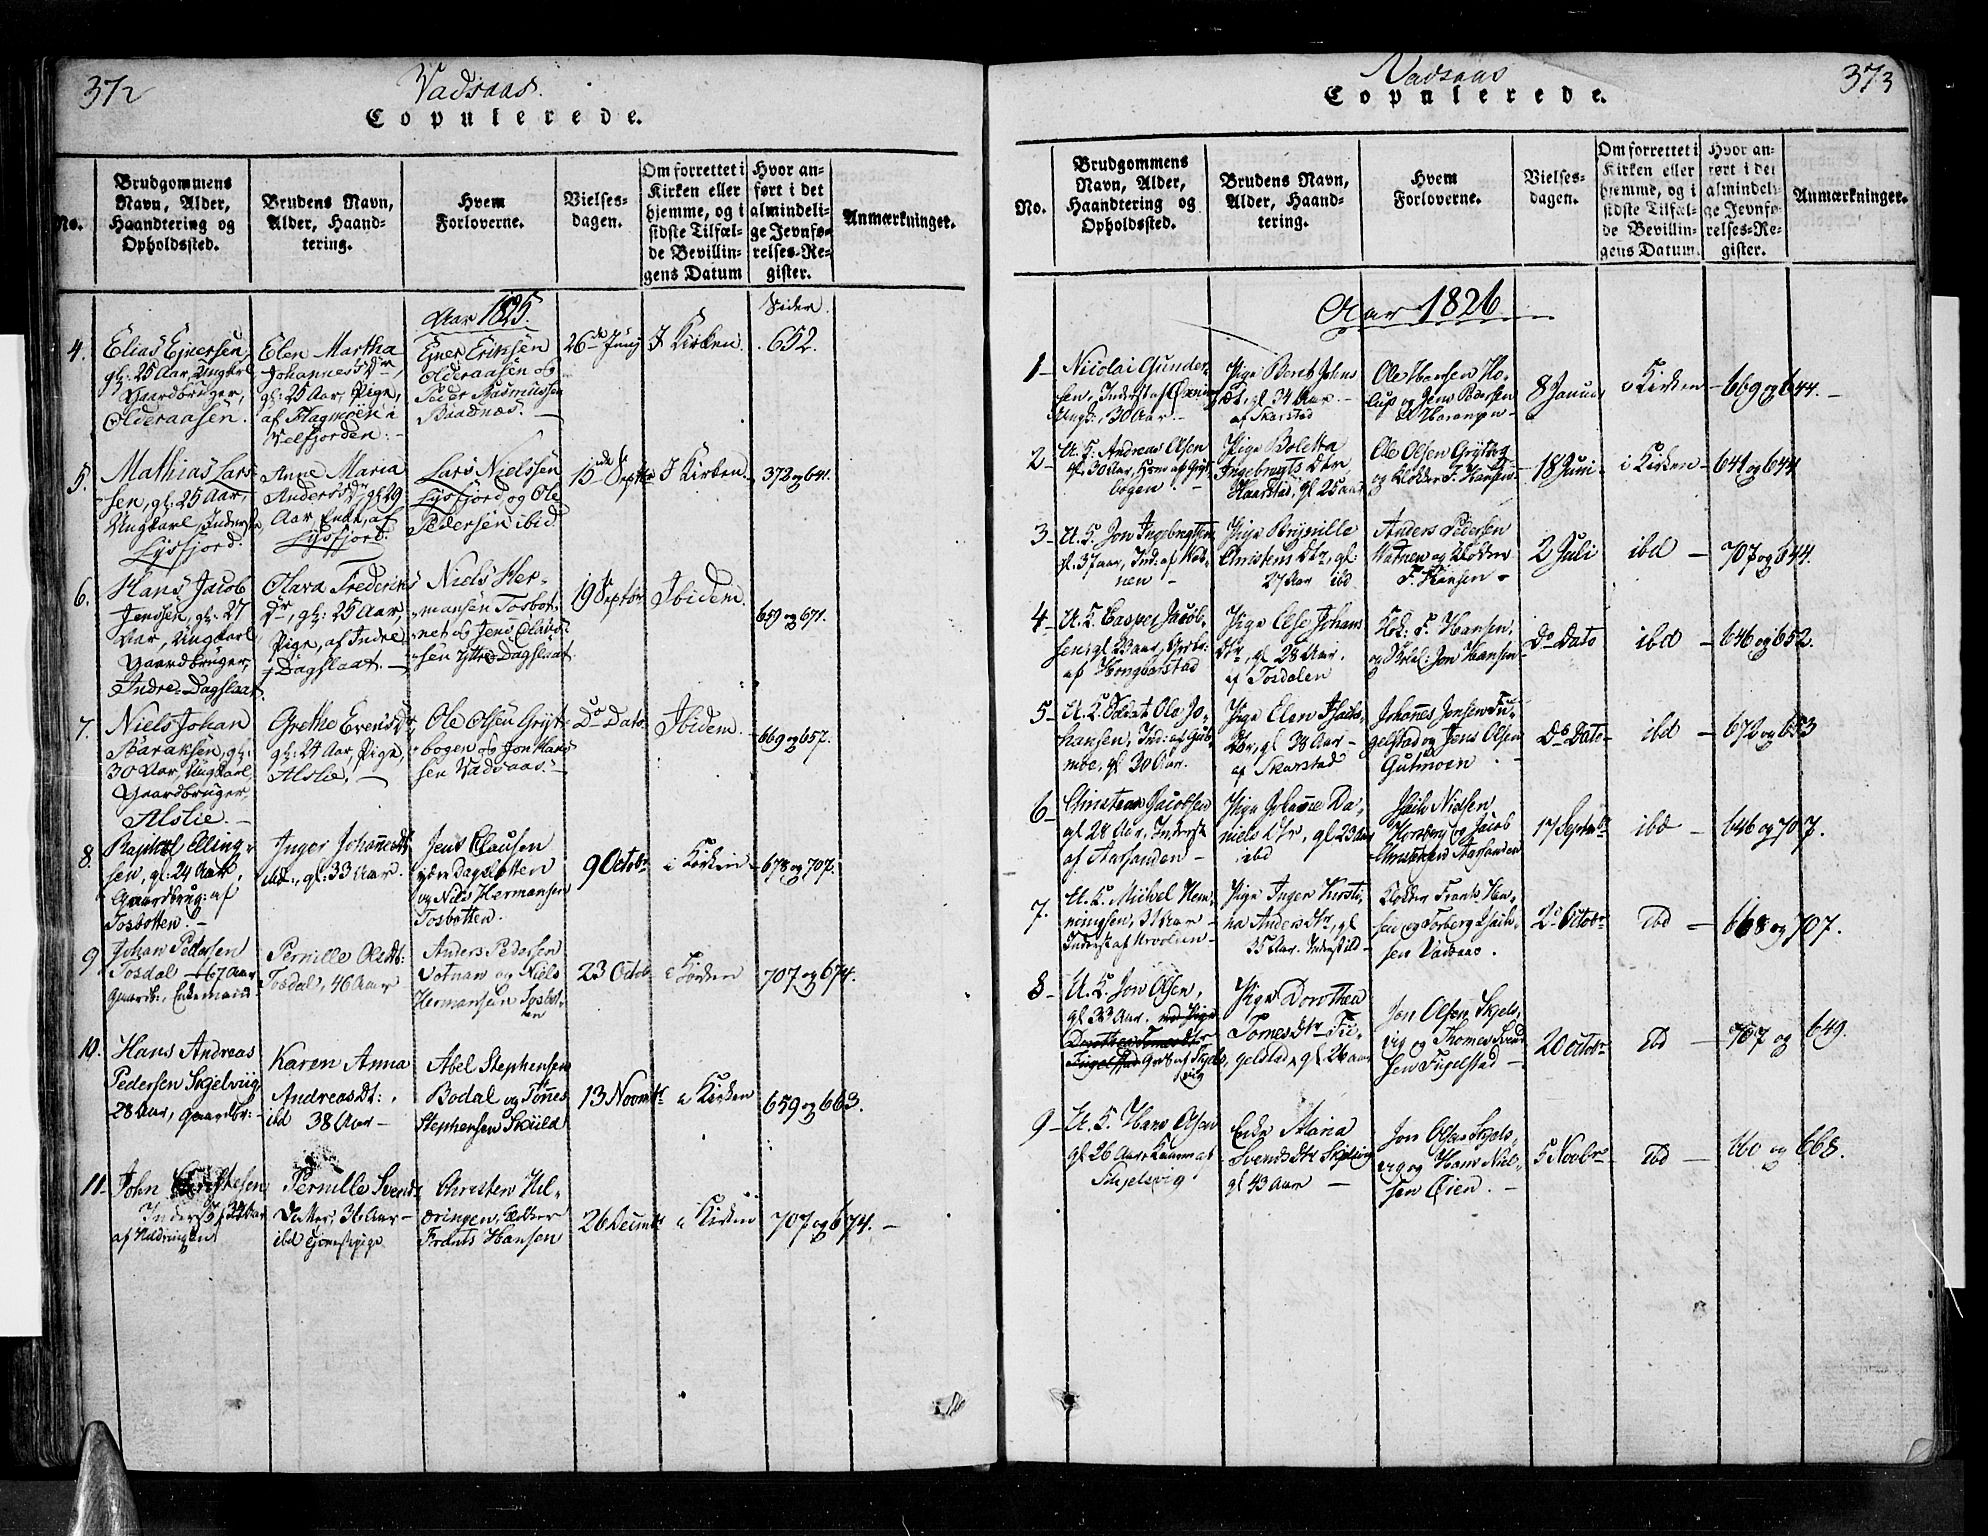 372
Vadsaas.
Copulerede.
No.
Brudgommens
Navn, Alder,
Haandtering og
Opholdssted.
Brudens Navn,
Alder, Haand-
tering.
Hvem
Forloverne.
Vielses-
dagen.
Om forrettet i
Kirken eller
hjemme, og i
sidste Tilfæl-
de Bevillin-
gens Datum
Hvor an-
ført i det
almindeli-
ge Jevnfø-
relses-Re-
gister.
Anmærkninger.
Aar 1825.
Sider.
4.
Elias Ejnersen,
gl: 25 Aar, Ungkarl
Gaardbruger,
Olderaasen.
Elen Martha
Johannesdr,
gl: 25 Aar, Pige,
af Hagmoen i
Velfjorden.
Ejner Eriksen
Olderaasen og
Peder Rasmussen
Baadnæs.
26de Junj
I Kirken.
652.
5.
Mathias Lars-
sen, gl: 25 Aar,
Ungkarl, Inderst,
Lysfjord.
Anne Maria
Andersdr, gl: 29
Aar, Enke, af
Lysfjord.
Lars Nielssen
Lysfjord og Ole
Pedersen ibid.
15de Septbr
I Kirken.
372 og 641.
6.
Hans Jacob
Jenssen, gl: 27
Aar, Ungkarl
Gaardbruger,
Indre Dagslaat.
Olava Frederiks
Dr, gl: 25 Aar,
Pige, af Indre
Dagslaat.
Niels Her-
mansen Tosbot-
net og Jens Olaus-
sen Yttre Dagslaat.
19 Septbr
Ibidem.
659 og 671.
7.
Niels Johan
Baraksen, gl:
30 Aar, Ungkarl,
Gaardbruger,
Alslie.
Grethe Evensdr
gl: 24 Aar, Pige,
Alslie.
Ole Olsen Gryt-
bogen og Jon Hans
sen Vadsaas.
Do Dato
Ibidem.
669 og 657.
8.
Raphael Elling-
sen, gl: 24 Aar,
Gaardbrug: af
Tosbotten
Inger Johannesdt
ibd:, gl: 33 Aar.
Jens Clausen
Dagslotten
og Niels Hermansen
Tosbotten.
9 Octobr
i Kirken
678 og 707.
9
Johan Pedersen
Tosdal 67 Aar
Gaardb:, Enkemand
Pernille Olsdt:
Tosdal, 46 Aar
Anders Pedersen
Vatnan og Niels
Hermansen Tosbot-
ten
23 Octob
i Kirken
707 og 674.
10.
Hans Andreas
Pedersen Skjelviig
28 Aar, gaardbr:
Karen Anna
Andreasdt:
ibd 38 Aar
Abel Stephensen
Bodal og Tønnes
Stephensen Skiild
13 Novmb
i Kirken
659 og 663.
11.
John Christesen
Inderst, 34 Aar
af Hildringen
Pernille Svends
Datter, 36 Aar
ibd Tjenestepige
Christen Hil-
dringen,
Frants Hansen
26 Decmb
i Kirken
707 og 674.
373
Vadsaas
Copulerede.
No.
Brudgommens
Navn, Alder,
Haandtering og
Opholdssted.
Brudens Navn,
Alder, Haand-
tering.
Hvem
Forloverne.
Vielses-
dagen.
Om forrettet i
Kirken eller
hjemme, og i
sidste Tilfæl-
de Bevillin-
gens Datum.
Hvor an-
ført i det
almindeli-
ge Jevnfø-
relses-Re-
gister.
Anmærkninger.
Aar 1826
1
Nicolai Gunder-
sen, Inderst af
Ungk: 30 Aar
Pige Beret Johns
Dt, gl 34 Aar
af Skarstad
Ole Hansen Ho-
lup og Jens Pedersen
8 Januar
i Kirken
669 og 644.
2
U. K. Andreas Olsen
gl. 30 Aar, af Gryt-
bogen
Pige Boletta
Ingebrigts Dtr
Haarstad, gl 25 aar
Ole Olsen Grytbog
og Klokker F. Hansen
18 Juni
i Kirken
641 og 644
3
U. K. Jon Ingebrigtsen
gl. 37 aar, Ind: af Vat-
nen
Pige Brynille
Christens Dtr, gl:
27 Aar ibd
Anders Pedersen
Watnen og Klokker
F. Hansen
2 Juli
ibd
707 og 644.
4
U. K. Casper Jacob-
sen, gl 33 aar,
af Hongbarstad
Pige Else Johans
Dtr, gl 28 Aar.
af Tosdalen
Klok: F. Hansen
og Jon Hansen
Do Dato
ibd
646 og 652.
5
U. K. Soldat Ole Jo-
hansen, Ind: af
gl 30 Aar.
Pige Elen Isachs-
Dtr, gl 34 Aar
af Skarstad
Johannes Jensen Fu-
gelstad og Jens Olsen
Gutmoen
Do Dato
ibd
672 og 653
6
Christian Jacobsen
gl 28 Aar, Inderst
af Aarsanden
Pige Johanne Da-
niels Dtr, gl 23 Aar
ibd
Isach Nielsen
Horsberg og Jacob
Christensen Aarsanden
17 Septembr
ibd
646 og 707.
7.
U. K. Michel Hem-
mingsen, 31 Aar
Inderst af
Pige Inger Kirsti-
na Anders Dtr, gl
35 Aar. Inderst ibd
Klokker Frants Han-
sen og Torberg Isach-
sen Vadsaas
2 Octobr
ibd
668 og 707.
8
U. K. Jon Olsen,
gl 33 Aar. med Pige
Dorothea Tomes Dtr
Fugelstad Gaardb af Skjels-
vig
Pige Dorothea
Tomes Dtr Fu-
gelstad, gl 26 aar
Jon Olsen Skjels-
vig og Thomes Svend
sen Fugelstad
20 Octobr
ibd
707 og 649.
9
U. K. Hans Olsen
gl 26 Aar af
Schjelsvig
Enke Maria
Svends Dtr Skjelsvig
gl 43 Aar
Jon Olsen Skjels-
vig og Hans Niel-
sen Øien.
5 Novbr
ibd
660 og 668.